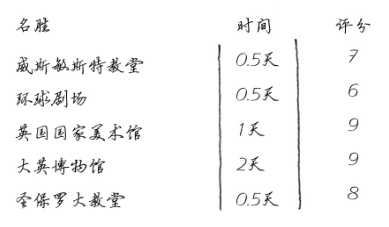 名胜 时间 评分
威斯敏斯特教堂 0.5天 7
环球剧场 0.5天 6
英国国家美术馆 1天 9
大英博物馆 2天 9
圣保罗大教堂 0.5天 8